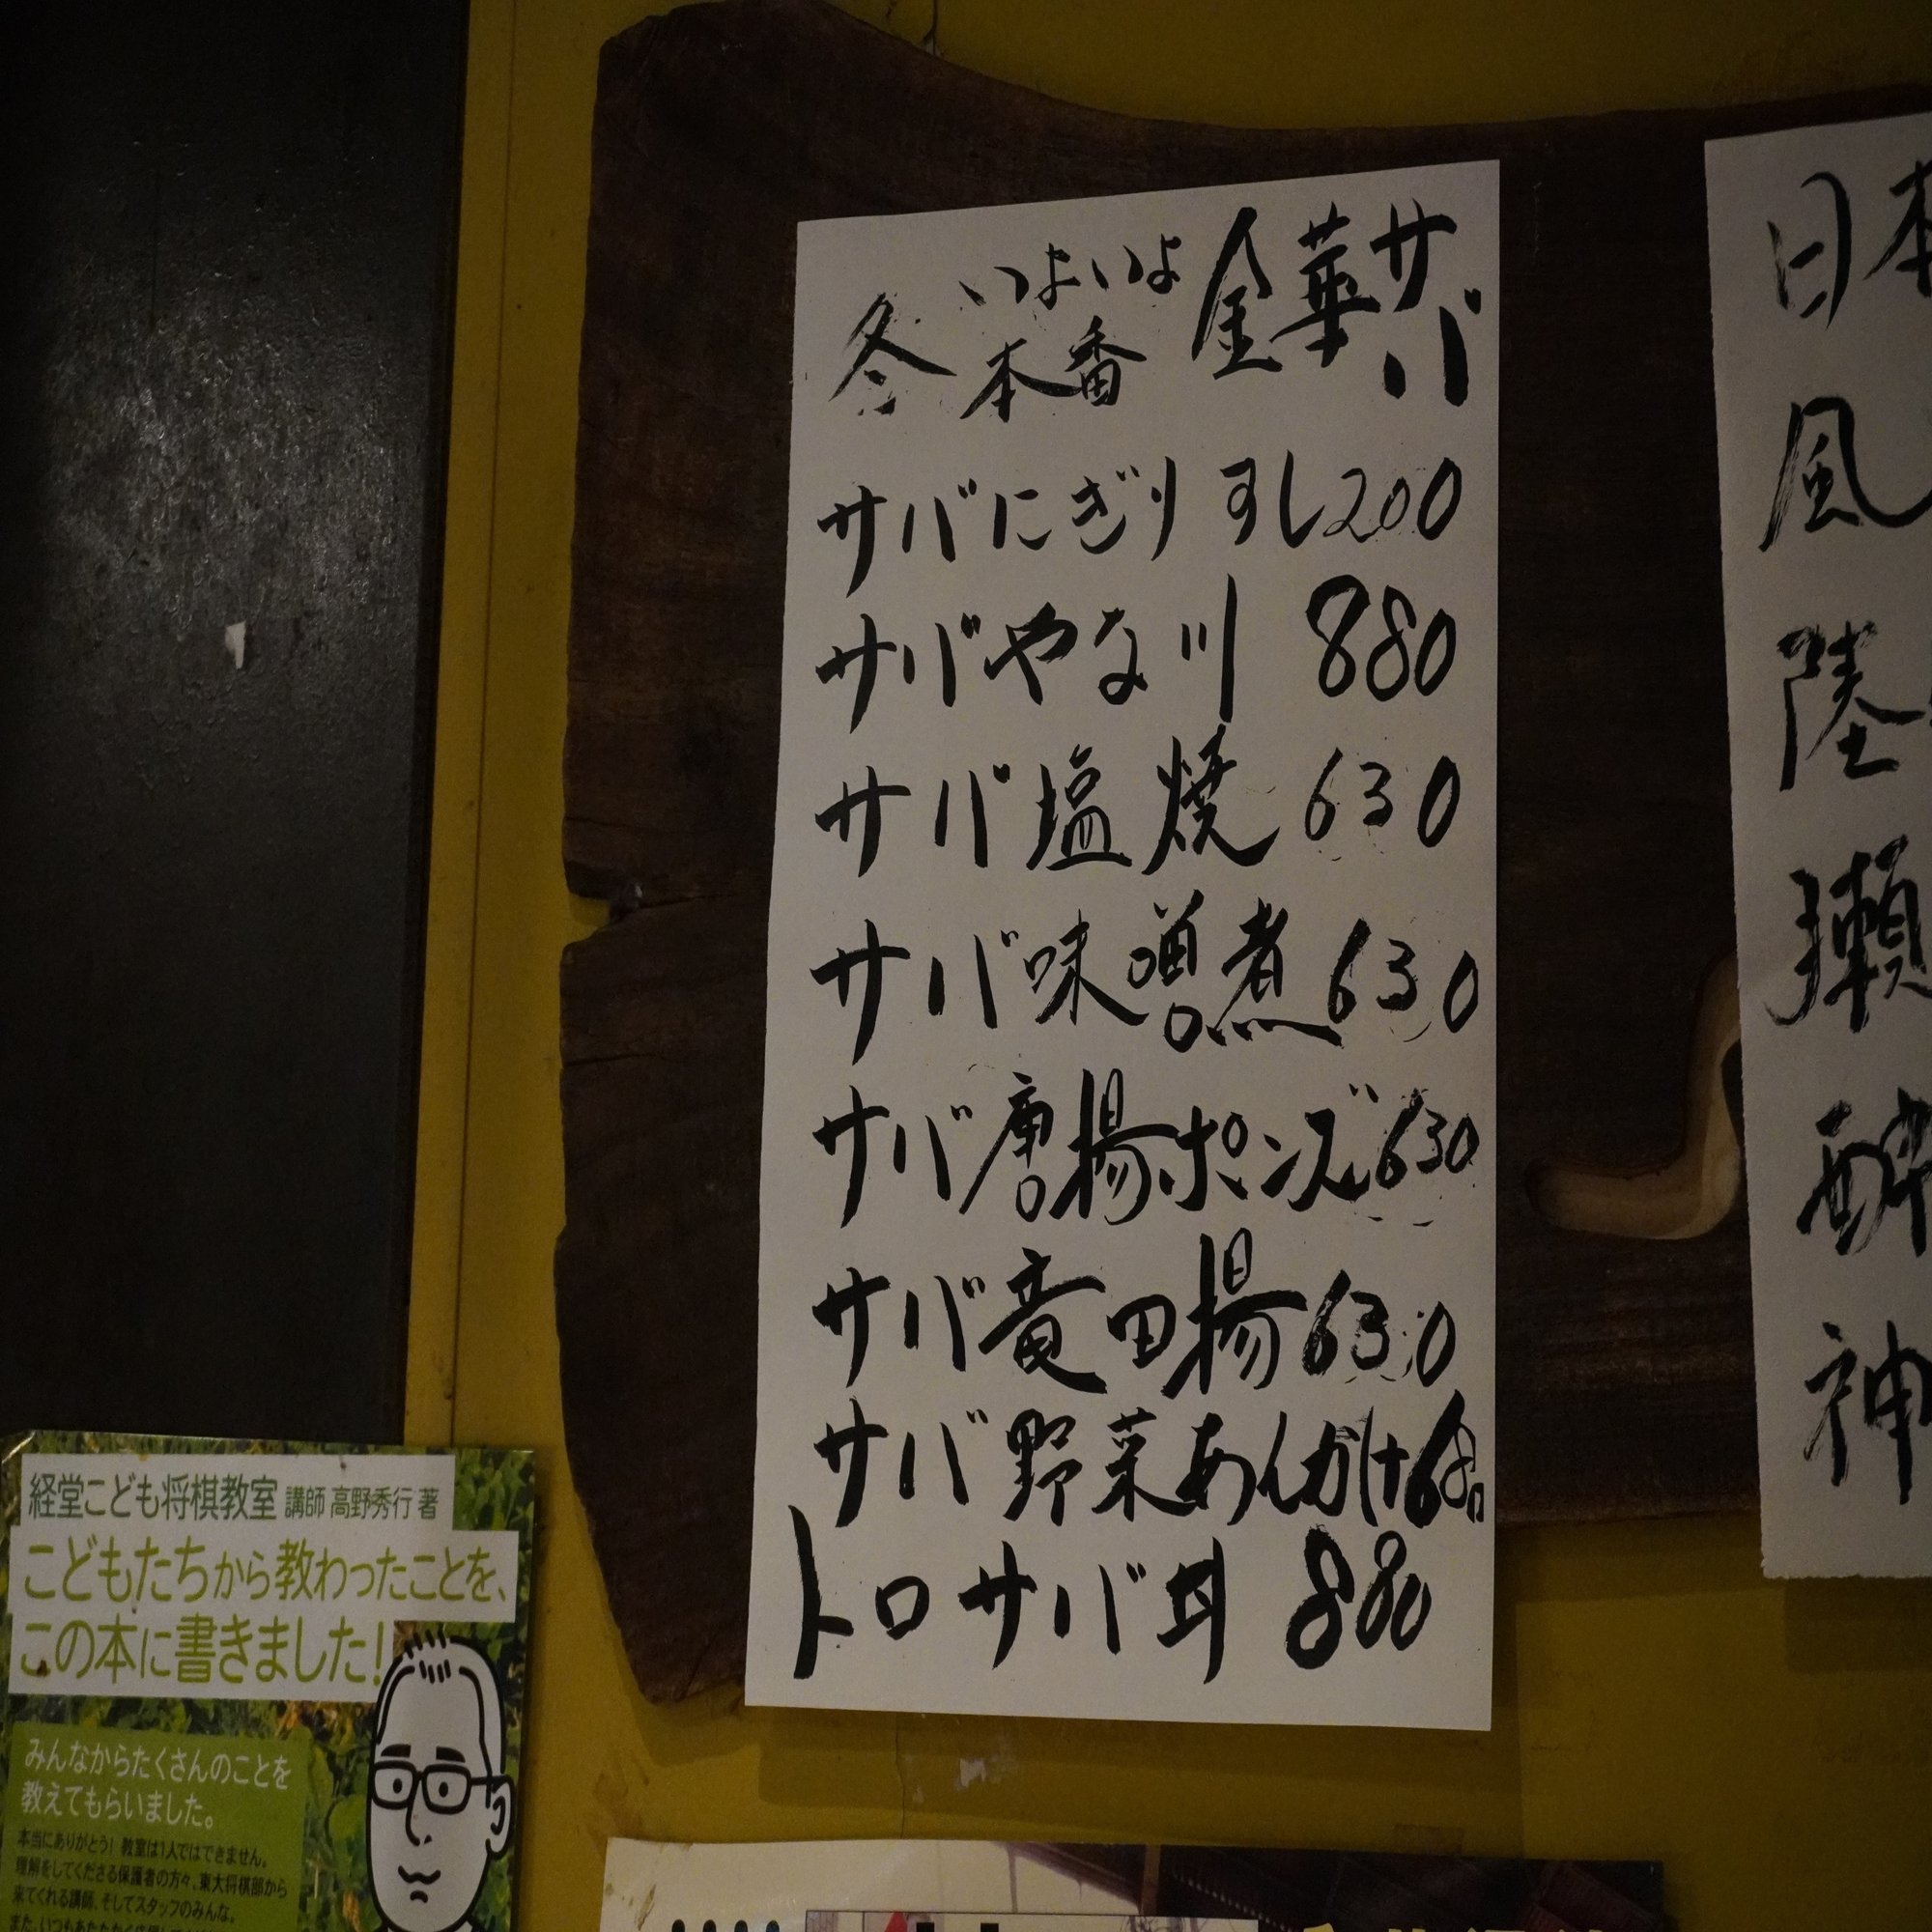 冬 いよいよ本番 金華サバ
サバにぎりずし200
サバやな川 880
サバ塩焼 630
サバ味噌煮 630
サバ唐揚ポンズ 630
サバ竜田揚 630
サバ野菜あんかけ
トロサバ丼 880
日本
風
陸
瀬
酔
神
経堂こども将棋教室 講師 高野秀行 著
こどもたちから教わったことを、
この本に書きました!
みんなからたくさんのことを
教えてもらいました。
本当にありがとう! 教室は1人ではできません。
理解をしてくださる保護者の方々、東大将棋部から
来てくれる講師、そしてスタッフのみんな。